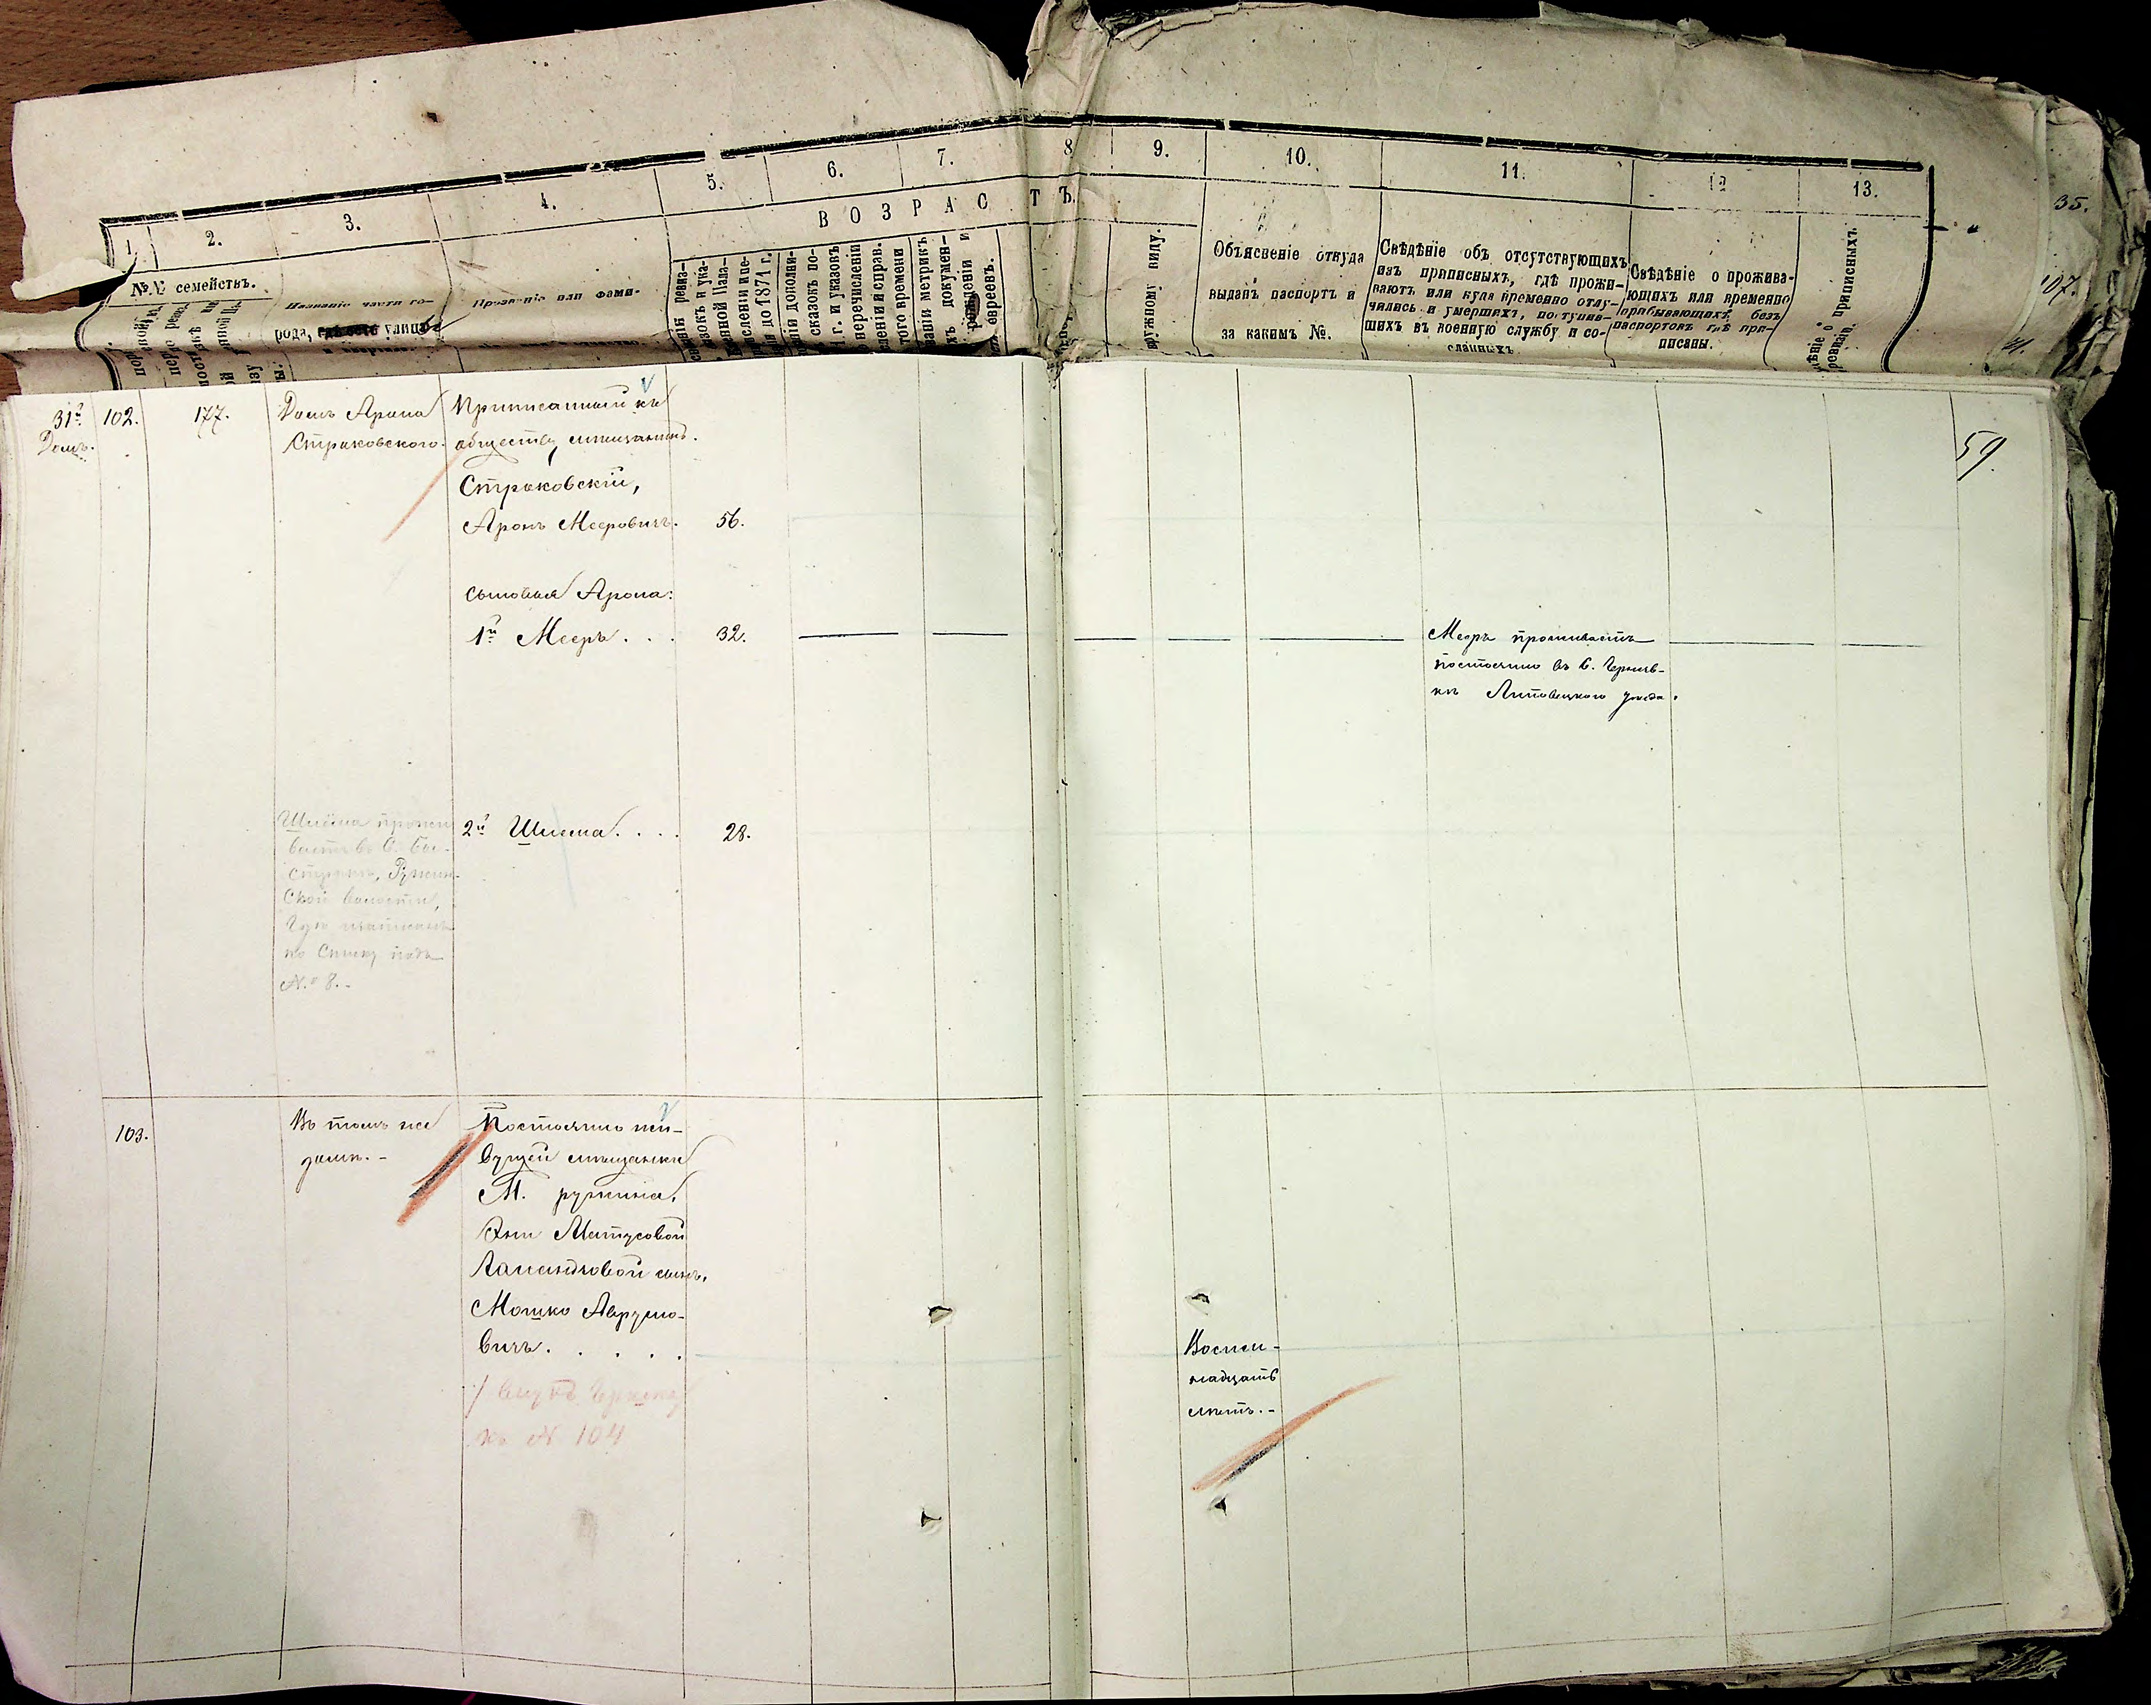 1. 2. 3. 4. 5. 6. 7. 8 9. 10. 11. 12 13.
35.
ВОЗРАСТЪ.
№№ семействъ.
Названіе части го-
рода, улица
Прозваніе или фами-
Объясненіе откуда
выданъ паспортъ и
за какимъ №.
Свѣдѣніе объ отсутствующихъ
изъ приписныхъ, гдѣ прожи-
ваютъ или куда временно отлу-
чились и умершихъ, поступив-
шихъ въ военную службу и со-
сланныхъ.
Свѣдѣніе о прожива-
ющихъ или временно
прибывающихъ безъ
паспортовъ гдѣ при-
писаны.
ружному виду.
о приписныхъ
107.
31й
Домъ.
102.
177.
Домъ Арона
Страковского.
Приписанный къ
обществу мѣщанинъ.
Страковскій,
Аронъ Мееровичъ. 56.
59.
сыновья Арона:
1й Мееръ . . . 32.
Мееръ проживаетъ
постоянно въ с. Черняв-
кѣ Липовецкого уѣзда.
2й Шлема . . . . 28.
Шлёма прожи
ваетъ въ с.
Ружин-
ской волости,
по списку подъ
№ 8.-
103.
Въ томъ же
домѣ.-
Постоянно жи-
вущей мѣщанки
М. Ружина,
Эни Матусовой
сынъ,
Мошко Аврумо-
вичъ. . . . .
внукъ
къ № 104
Восем-
надцать
лѣтъ.-